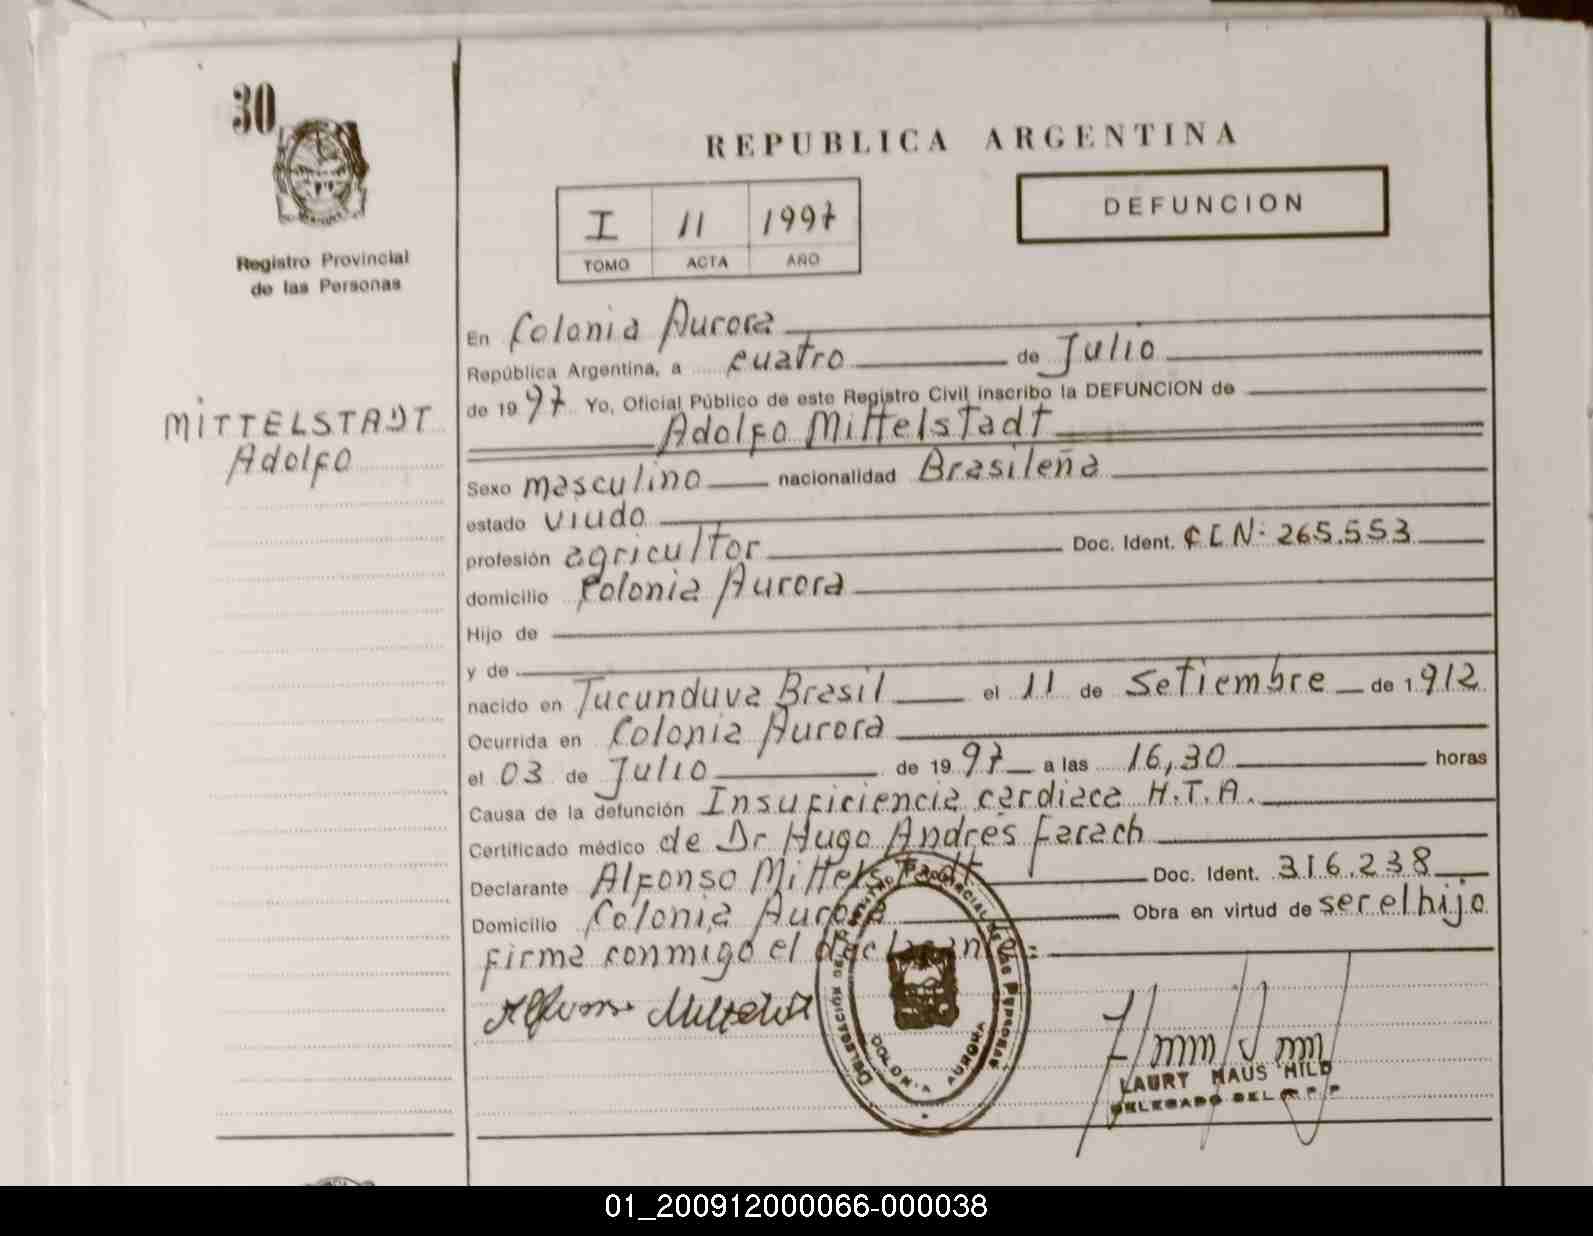 30
Registro Provincial
de las Personas
MITTELSTADT
Adolfo
REPUBLICA ARGENTINA
I 11 1997
TOMO ACTA AÑO
DEFUNCION
En Colonia Aurora
República Argentina, a cuatro de Julio
de 1997 Yo, Oficial Público de este Registro Civil inscribo la DEFUNCION de
Adolfo Mittelstadt
Sexo masculino nacionalidad Brasileña
estado viudo
profesión agricultor Doc. Ident. C I N: 265.553
domicilio Colonia Aurora
Hijo de
y de
nacido en Tucunduva Brasil el 11 de Setiembre de 1.912
Ocurrida en Colonia Aurora
el 03 de Julio de 1997 a las 16,30 horas
Causa de la defunción Insuficiencia cardiaca H.T.A.
Certificado médico de Dr Hugo Andrés Farach
Declarante Alfonso Mittelstadt Doc. Ident. 316.238
Domicilio Colonia Aurora Obra en virtud de ser el hijo
firma conmigo el declarante:
Alfonso Mittelstadt
DELEGACIÓN DEL REGISTRO PROVINCIAL DE LAS PERSONAS
COLONIA AURORA
LAURY HAUS HILD
DELEGADO DEL R.P.P
01_200912000066-000038